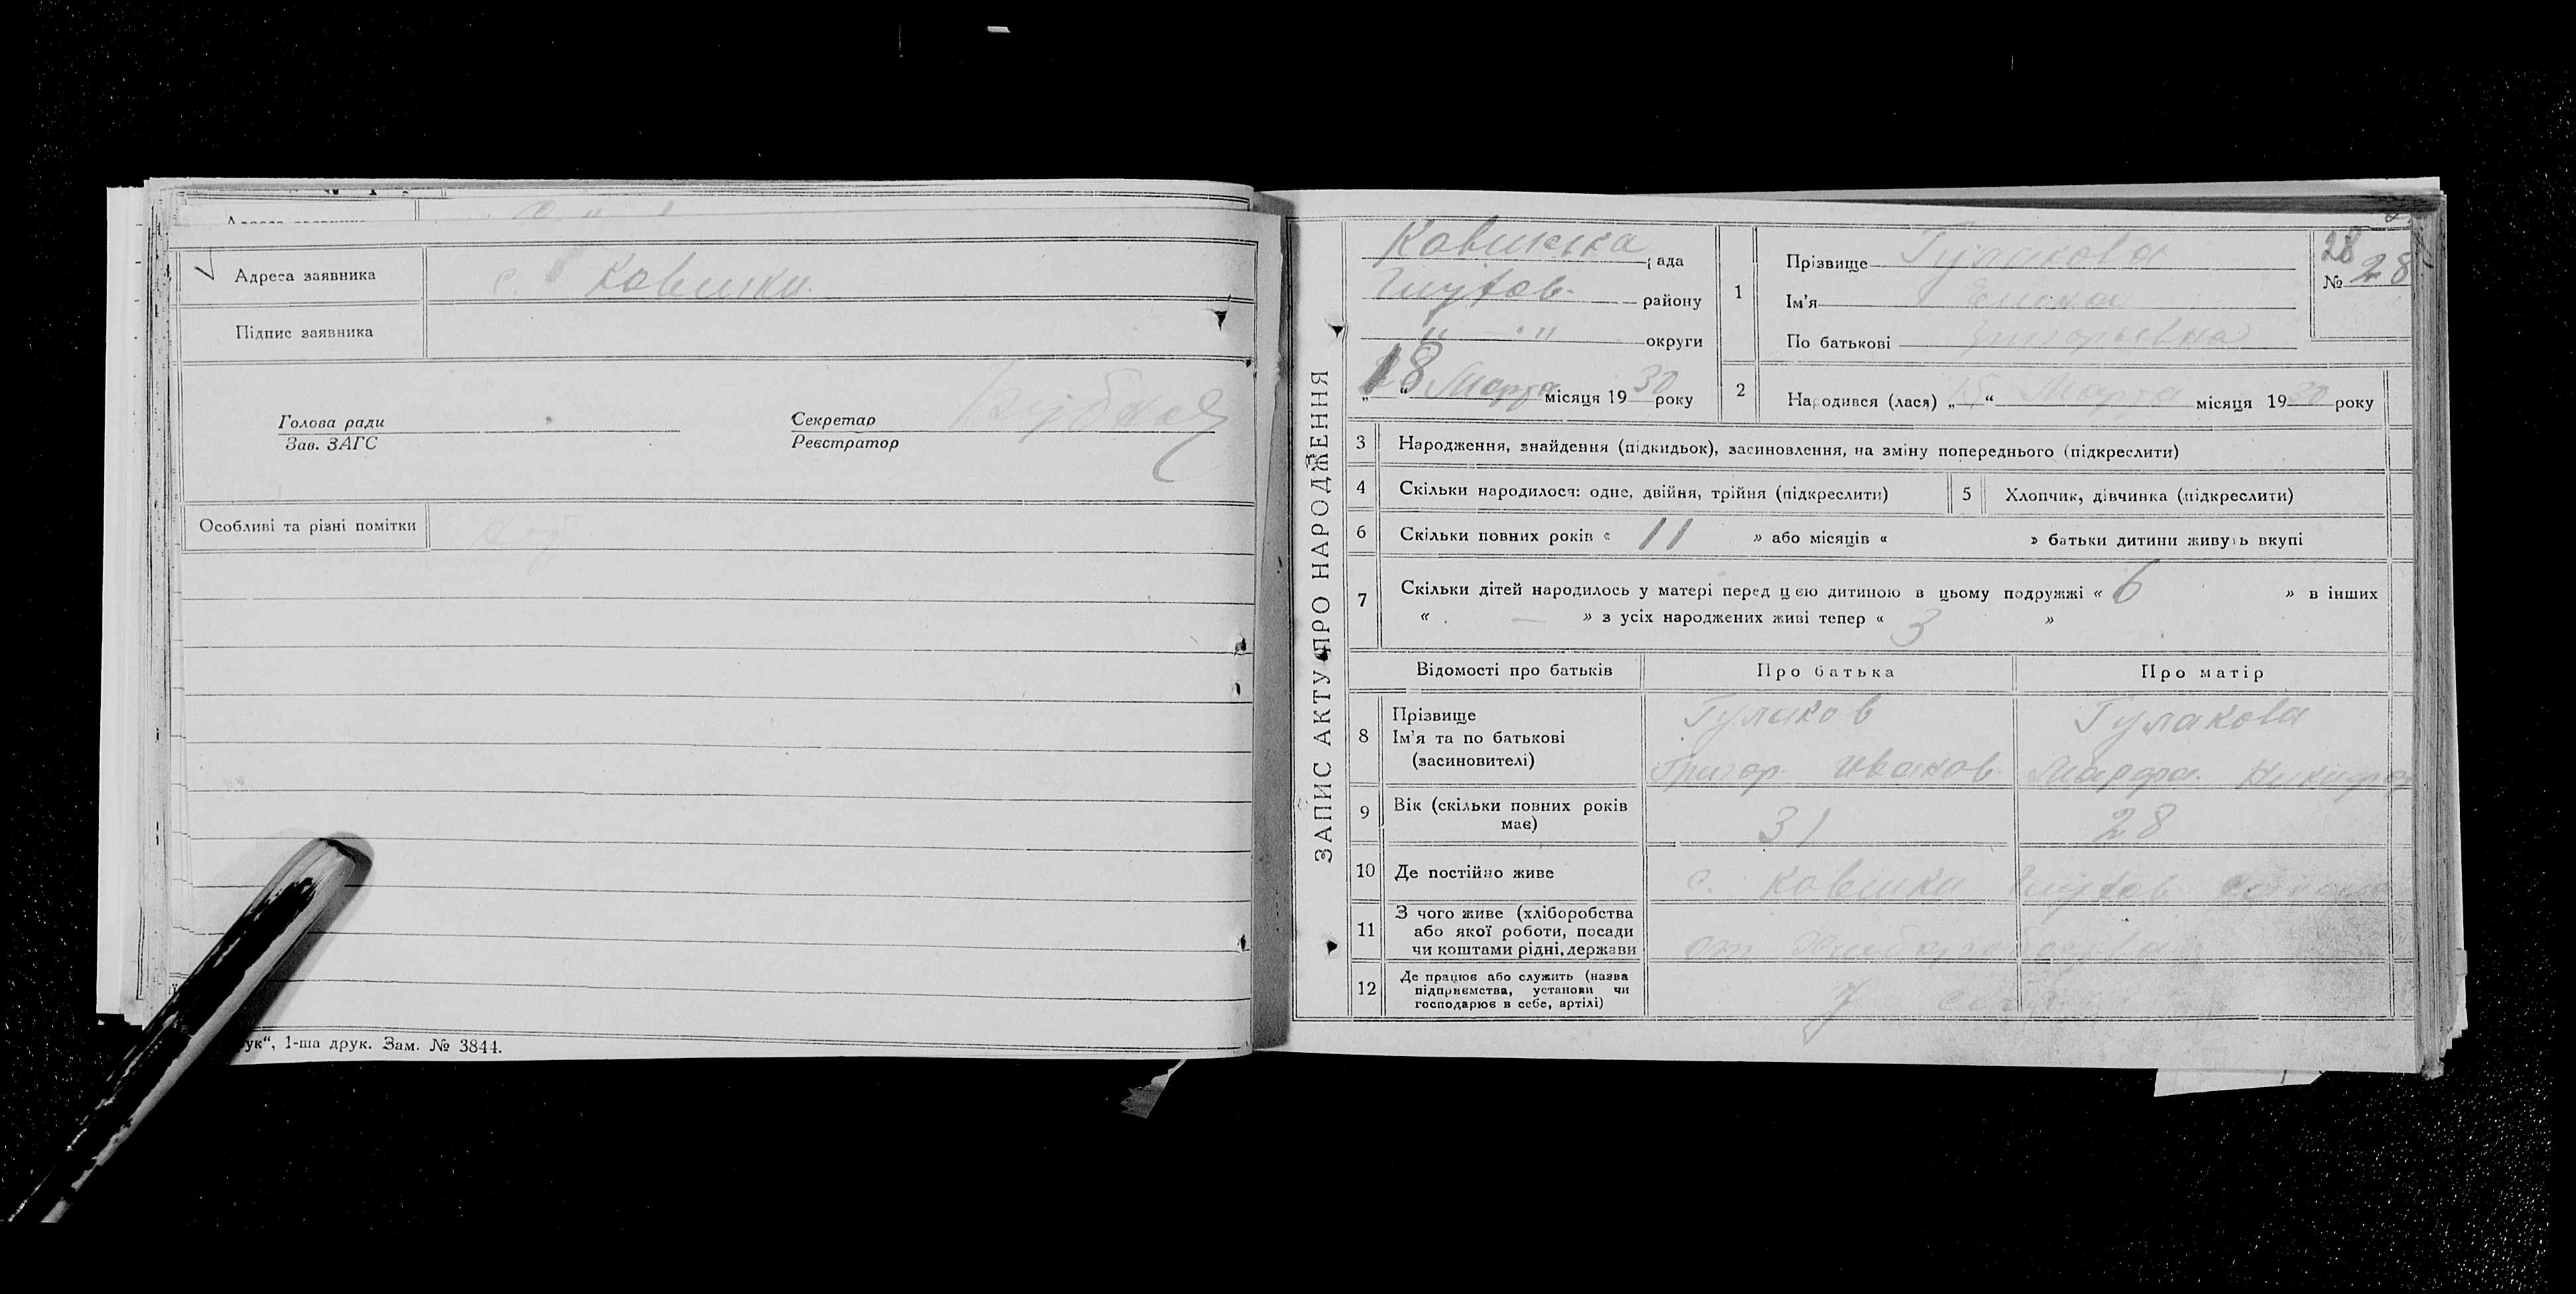 Адреса заявника
с. Ковшики.
Підпис заявника
Голова ради
Зав. ЗАГС
Секретар
Реєстратор
Особливі та різні помітки
ук“, 1-ша друк. Зам. № 3844.
ЗАПИС АКТУ ПРО НАРОДЖЕННЯ
рада
району
„ „ округи
18 Марта місяця 1930 року
28
№ 28
1
Прізвище Гулакова
Ім’я
По батькові Григорьевна
2
Народився (лася) „15“ Марта місяця 1930 року
3 Народження, знайдення (підкидьок), засиновлення, на зміну попереднього (підкреслити)
4 Скільки народилося: одне, двійня, трійня (підкреслити)
5 Хлопчик, дівчинка (підкреслити)
6 Скільки повних років « 11 » або місяців « » батьки дитини живуть вкупі
7 Скільки дітей народилось у матері перед цією дитиною в цьому подружжі « 6 » в інших
« — » з усіх народжених живі тепер « 3 »
Відомості про батьків Про батька Про матір
8 Прізвище
Ім’я та по батькові
(засиновителі)
Гулаков Гулакова
Григор. Иванов. Марфа Никифор
9 Вік (скільки повних років
має)
31 28
10 Де постійно живе
с. Ковшики
11 З чого живе (хліборобства
або якої роботи, посади
чи коштами рідні, держави
от
12 Де працює або служить (назва
підприємства, установи чи
господарює в себе, артілі)